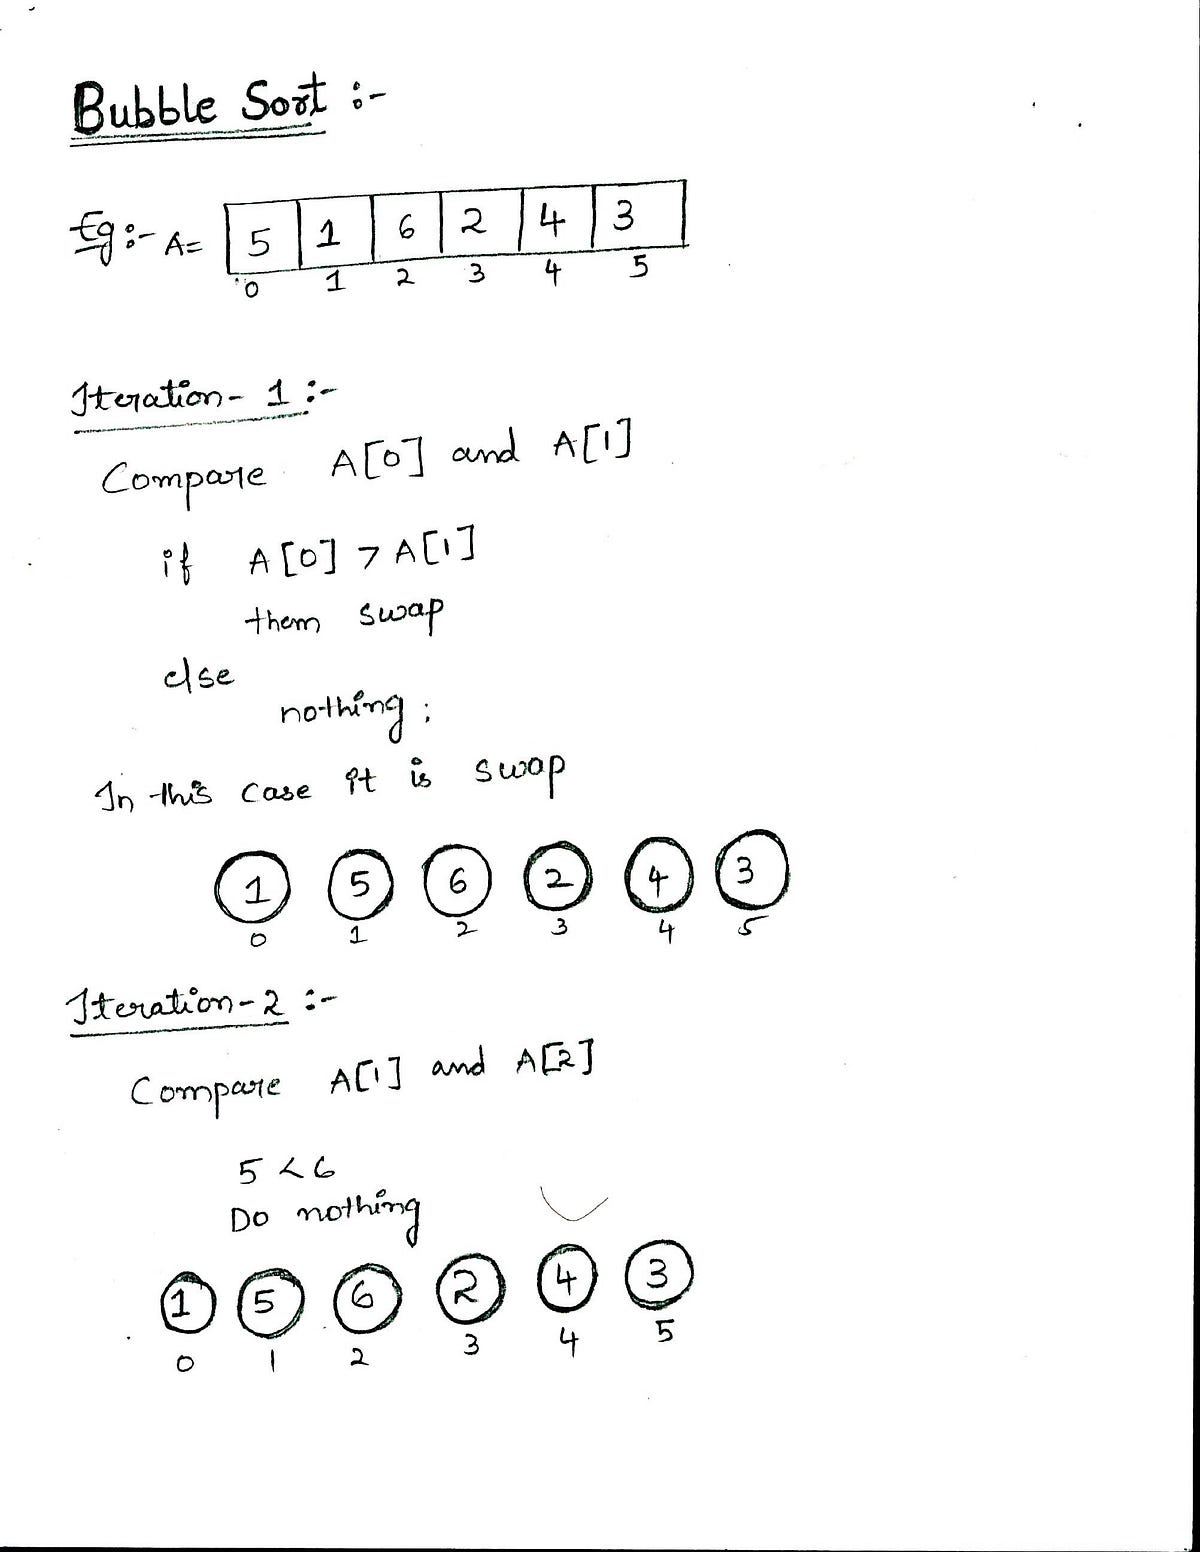 Bubble Sort :-
Eg :- A= 5 1 6 2 4 3
0 1 2 3 4 5
Iteration - 1 :-
Compare A[0] and A[1]
if A[0] > A[1]
them swap
else
nothing;
In this case it is swap
1 5 6 2 4 3
0 1 2 3 4 5
Iteration - 2 :-
Compare A[1] and A[2]
5 < 6
Do nothing
1 5 6 2 4 3
0 1 2 3 4 5